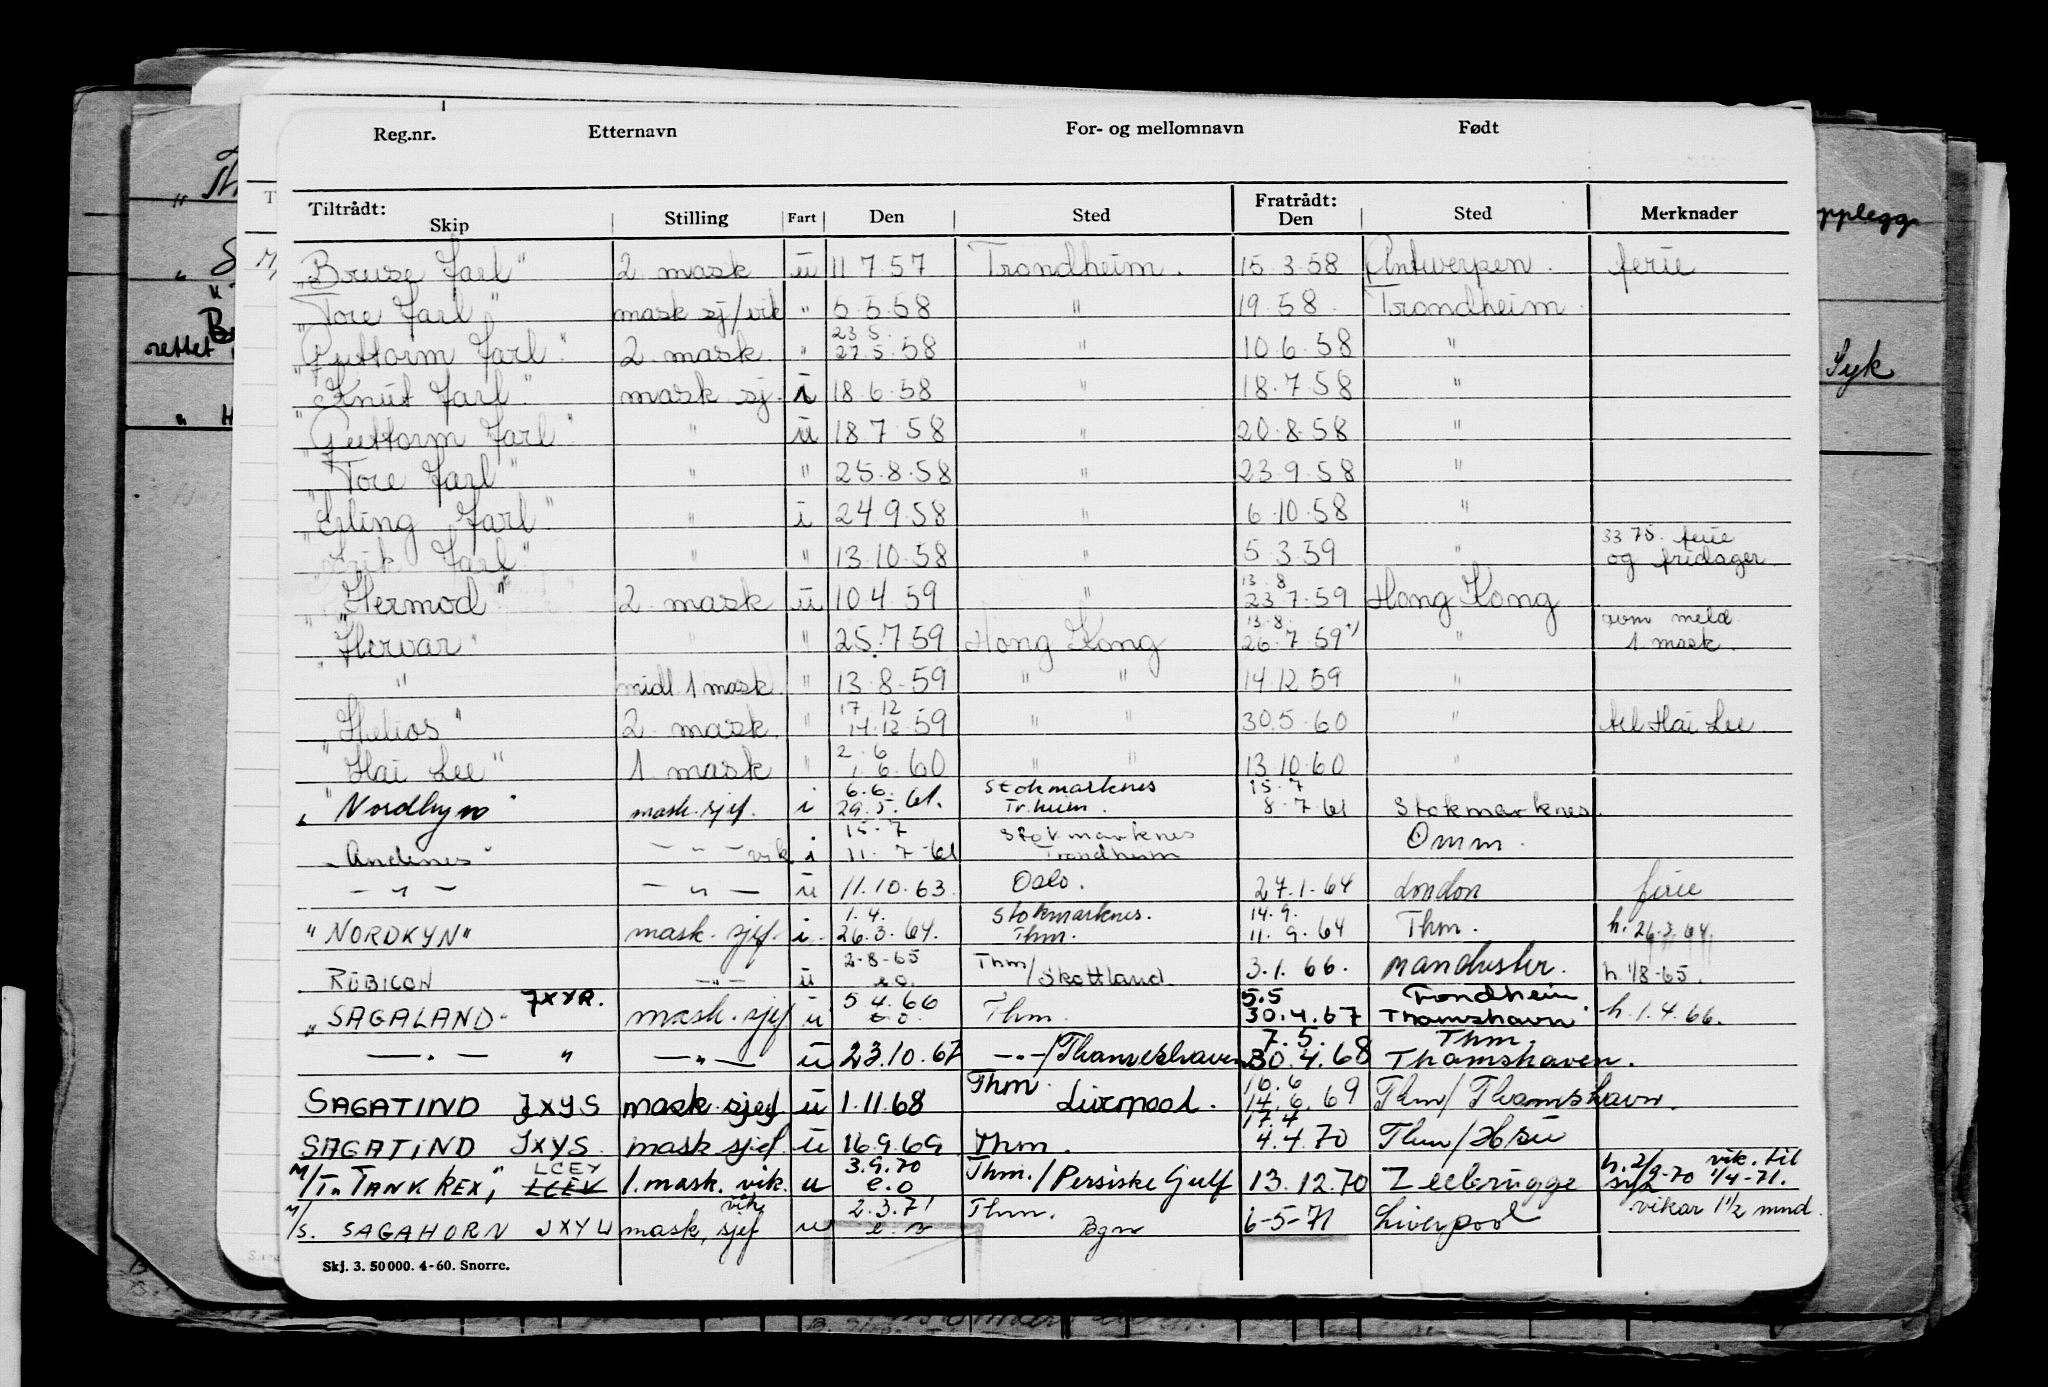 Reg.nr. Etternavn For- og mellomnavn Født
Tiltrådt: Skip Stilling Fart Den Sted Fratrådt: Den Sted Merknader
"Bruse Jarl" 2 mask u 11 7.57 Trondheim. 15.3.58 Antwerpen. ferie
"Tore Jarl" mask sj/vik " 5.5.58 " 19.58. Trondheim.
"Guttorm Jarl" 2. mask. " 23 5. 27.5.58 " 10.6.58 "
"Knut Jarl" mask sj. i 18.6.58 " 18.7.58 "
"Guttorm Jarl" " u 18.7.58 " 20.8.58 "
"Tore Jarl" " " 25.8.58 " 23.9.58 "
"Erling Jarl" " i 24.9.58 " 6.10.58 "
"Erik Jarl" " " 13.10.58 " 5.3.59 " ferie og fridager
"Hermod" 2. mask u 10.4.59 " 13.8 23.7.59 Hong Kong
"Hervar" " " 25.7.59 Hong Kong 13.8. 26.7.59 " meld. 1. mask.
" midl 1 mask. " 13.8-59 " " 14.12.59 "
"Helios" 2. mask. " 17 12 14.12.59 " " 30.5.60 " til Hai Lee.
"Hai Lee" 1. mask " 2.6 1.6.60 " " 13.10.60 "
"Nordkyn" mask.sjef. i 6.6. 29.5.61. Stokmarknes Tr.heim. 15.7 8.7.61 Stokmarknes.
"Andenes" — " — vik i 15.7 11.7-61 Stokmarknes Trondheim Omm.
— " — — " — u 11.10.63. Oslo. 27.1.64 London ferie
"NORDKYN" mask.sjef. i. 1.4. 26.3.64. Stokmarknes. Thm. 14.9. 11.9.64 Thm. h. 26.3.64.
RUBICON — " — u 2-8-65 e.o. Thm/Skottland. 3.1.66. Manchester. h. 1/8-65.
"SAGALAND" JXYR. mask.sjef u 5.4.66 e.o. Thm. 5.5 30.4.67 Trondheim Thamshavn h.1.4.66.
— " — " — " — u 23.10.67 — " —/Thamshavn 7.5. 30.4.68 Thm. Thamshaven.
SAGATIND JXYS mask.sjef u 1.11.68 Thm. Liverpool. 16.6 14.6.69 Thm/Thamshavn.
SAGATIND JXYS. mask sjef. u 16.9.69 Thm. 17.4 4.4.70 Thm/
M/T "TANK REX", LCEY LCEV 1. mask. vik. u 3.9.70 e.o Thm./Persiske Gulf 13.12.70 Zeebrugge h. 2/9-70 vik. til 1/4-71.
M/S. SAGAHORN JXYU mask, sjef vik u 2.3.71 Thm. Bgn 6-5-71 Liverpool vikar 1 1/2 mnd.
Skj. 3. 50 000. 4-60. Snorre.
pplegg
rettet
Syk